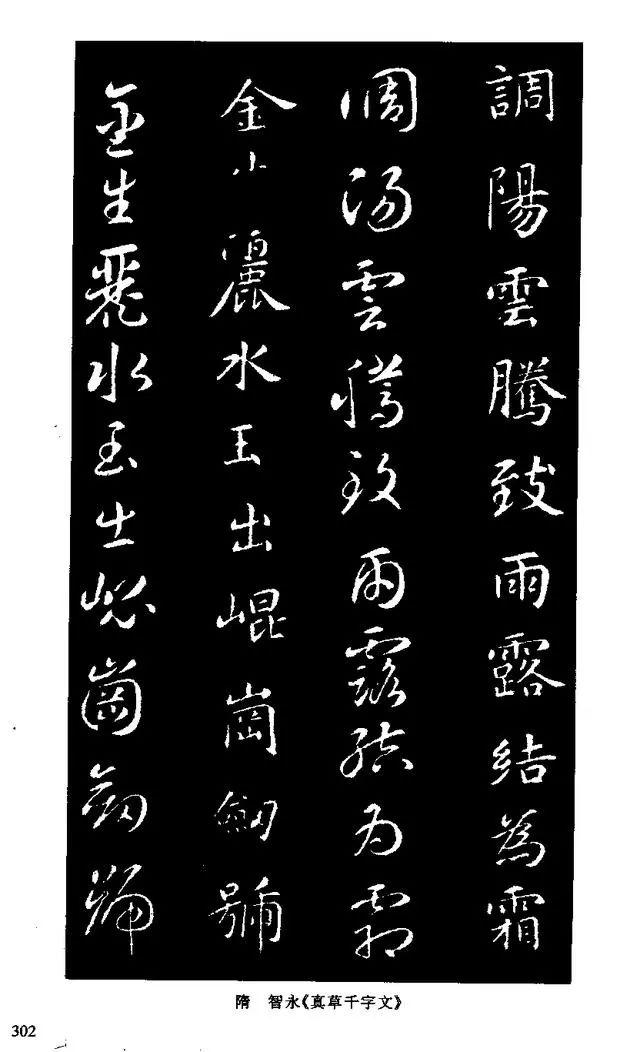 調陽雲騰致雨露結為霜
調陽雲騰致雨露結為霜
金生麗水玉出崐崗劒號
金生麗水玉出崐崗劒號
隋 智永《真草千字文》
302